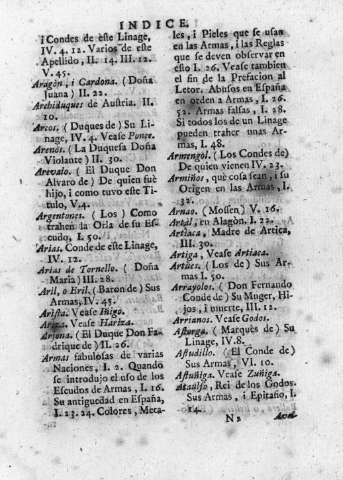 INDICE.
i Condes de èste Linage,
IV. 4. 12. Varios de este
Apellido, II. 14. III. 12.
V. 45.
Aragòn, i Cardona. (Doña
Juana) II. 22.
Archiduques de Austria. II.
10.
Arcos. (Duques de) Su Li-
nage, IV. 4. Vease Ponce.
Arenòs. (La Duquesa Doña
Violante) II. 30.
Arevalo. (El Duque Don
Alvaro de) De quien fuè
hijo, i como tuvo este Ti-
tulo, V. 4.
Argentones. (Los) Como
trahen la Orla de su Es-
cudo, I. 50.
Arias. Conde de este Linage,
IV. 12.
Arias de Tornello. (Doña
Maria) III. 28.
Aril, o Eril. (Baron de) Sus
Armas, IV. 45.
Arista. Vease Iñigo.
Ariza. Vease Hariza.
Arjona. (El Duque Don Fa-
drique de) II. 26.
Armas fabulosas de varias
Naciones, I. 2. Quando
se introdujo el uso de los
Escudos de Armas, I. 16.
Su antiguedad en España,
I. 23. 24. Colores, Meta-
les, i Pieles que se usan
en las Armas, i las Reglas
que se deven observar en
èsto I. 26. Vease tambien
el fin de la Prefacion al
Letor. Abusos en España
en orden a Armas, I. 26.
52. Armas falsas, I. 28.
Si todos los de un Linage
pueden traher unas Ar-
mas, I. 48.
Armengol. (Los Condes de)
De quien vienen IV. 23.
Armiños, què cosa sean, i su
Origen en las Armas, I.
32.
Arnao. (Mossen) V. 16.
Artàl, en Alagòn. I. 22.
Artiaca, Madre de Artiga,
III. 30.
Artiga, Vease Artiaca.
Artùes. (Los de) Sus Ar-
mas I. 50.
Arrayolos. (Don Fernando
Conde de) Su Muger, Hi-
jos, i muerte, III. 12.
Arrianos. Vease Godos.
Astorga. (Marquès de) Su
Linage, IV. 8.
Astudillo. (El Conde de)
Sus Armas, VI. 10.
Astuñiga. Vease Zuñiga.
Ataùlfo, Rei de los Godos.
Sus Armas, i Epitafio, I.
14.
N2